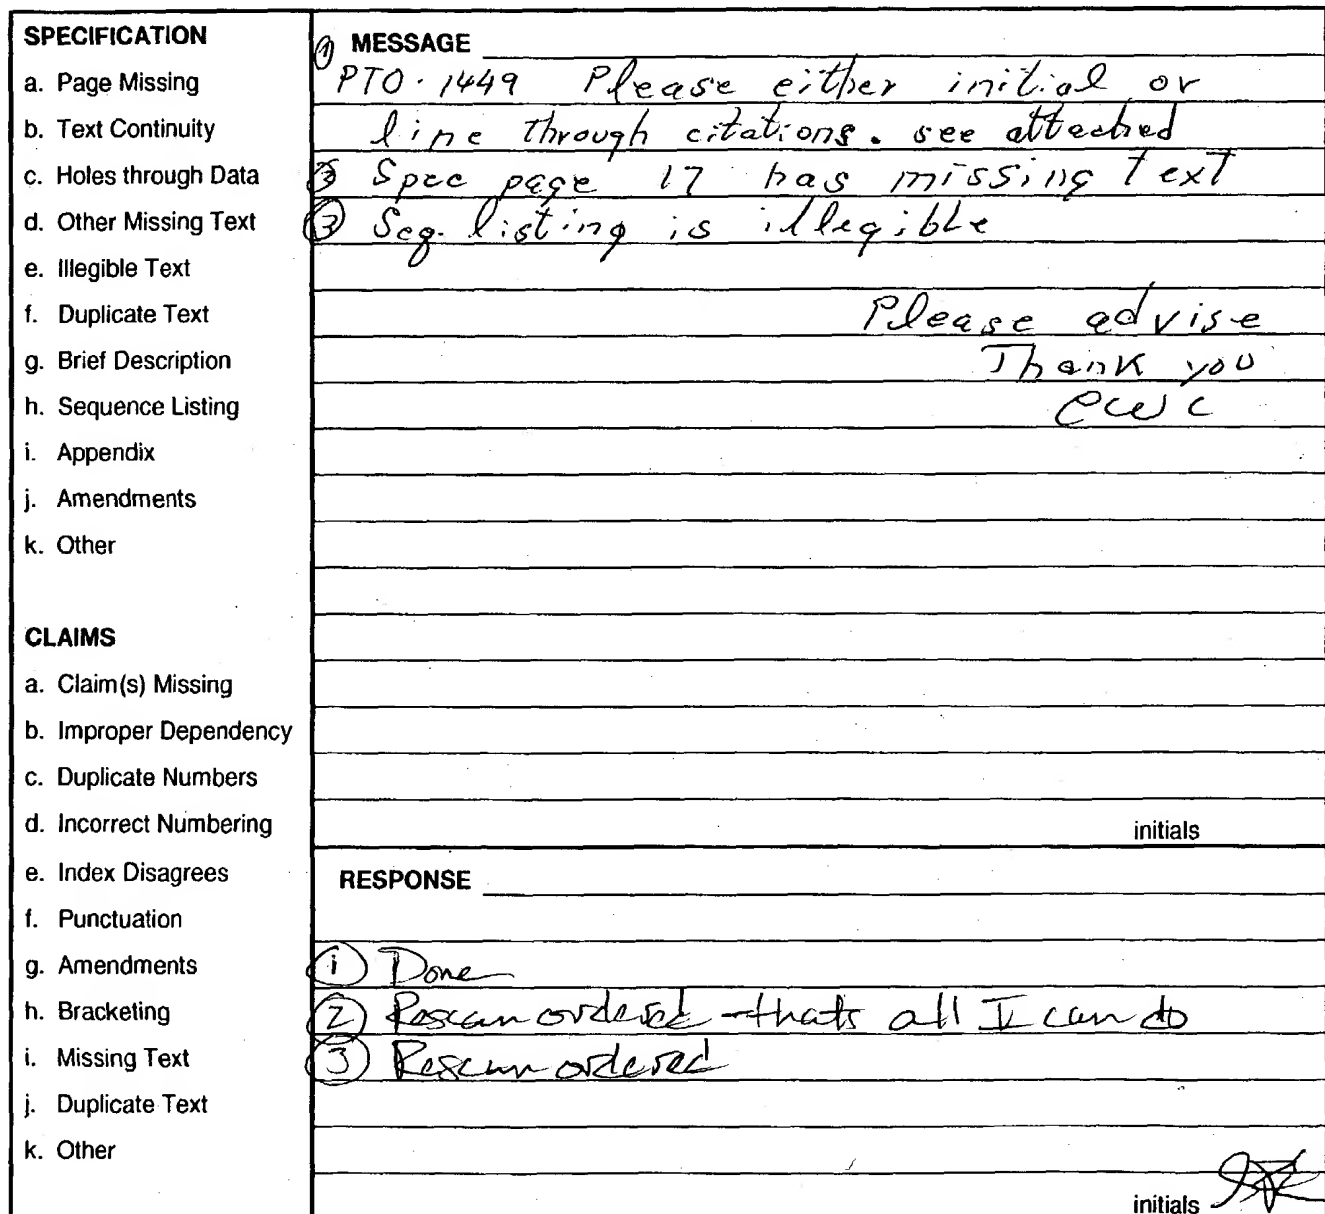 SPECIFICATION
a. Page Missing
b. Text Continuity
c. Holes through Data
d. Other Missing Text
e. Illegible Text
f. Duplicate Text
g. Brief Description
h. Sequence Listing
i. Appendix
j. Amendments
k. Other
CLAIMS
a. Claim(s) Missing
b. Improper Dependency
c. Duplicate Numbers
d. Incorrect Numbering
e. Index Disagrees
f. Punctuation
g. Amendments
h. Bracketing
i. Missing Text
j. Duplicate Text
k. Other
① MESSAGE
PTO-1449 Please either initial or
line through citations. see attached
② Spec page 17 has missing text
③ Seq. listing is illegible
Please advise
Thank you
CWC
initials
RESPONSE
① Done
② Rescan ordered - thats all I can do
③ Rescan ordered
initials